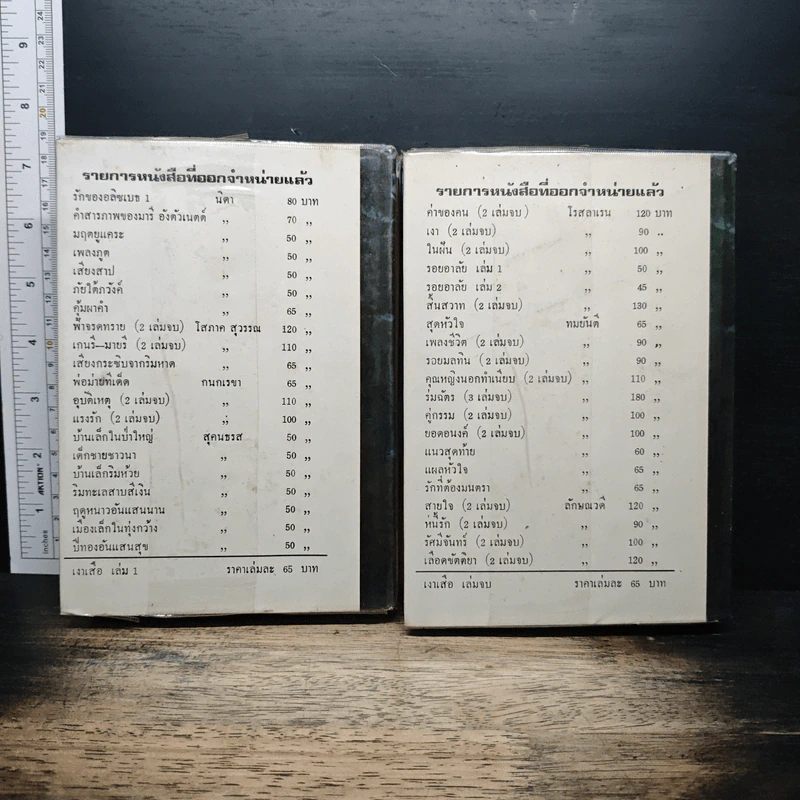 รายการหนังสือที่ออกจำหน่ายแล้ว
รักของอลิซเบธ 1 นิดา 80 บาท
คำสารภาพของมารี อังตัวเนตต์ ,, 70 ,,
มฤตยูแคระ ,, 50 ,,
เพลงภูต ,, 50 ,,
เสียงสาป ,, 50 ,,
ภัยใต้ภวังค์ ,, 50 ,,
คุ้มผาคำ ,, 65 ,,
ฟ้าจรดทราย (2 เล่มจบ) โสภาค สุวรรณ 120 ,,
เกนรี—มายรี (2 เล่มจบ) ,, 110 ,,
เสียงกระซิบจากริมหาด ,, 65 ,,
พ่อม่ายทีเด็ด กนกเรขา 65 ,,
อุบัติเหตุ (2 เล่มจบ) ,, 110 ,,
แรงรัก (2 เล่มจบ) ,, 100 ,,
บ้านเล็กในป่าใหญ่ สุคนธรส 50 ,,
เด็กชายชาวนา ,, 50 ,,
บ้านเล็กริมห้วย ,, 50 ,,
ริมทะเลสาบสีเงิน ,, 50 ,,
ฤดูหนาวอันแสนนาน ,, 50 ,,
เมืองเล็กในทุ่งกว้าง ,, 50 ,,
ปีทองอันแสนสุข ,, 50 ,,
เงาเสือ เล่ม 1 ราคาเล่มละ 65 บาท
รายการหนังสือที่ออกจำหน่ายแล้ว
ค่าของคน (2 เล่มจบ) โรสลาเรน 120 บาท
เงา (2 เล่มจบ) ,, 90 ,,
ในฝัน (2 เล่มจบ) ,, 100 ,,
รอยอาลัย เล่ม 1 ,, 50 ,,
รอยอาลัย เล่ม 2 ,, 45 ,,
สิ้นสวาท (2 เล่มจบ) ,, 130 ,,
สุดหัวใจ ทมยันตี 65 ,,
เพลงชีวิต (2 เล่มจบ) ,, 90 ,,
รอยมลทิน (2 เล่มจบ) ,, 90 ,,
คุณหญิงนอกทำเนียบ (2 เล่มจบ) ,, 110 ,,
ร่มฉัตร (3 เล่มจบ) ,, 180 ,,
คู่กรรม (2 เล่มจบ) ,, 100 ,,
ยอดอนงค์ (2 เล่มจบ) ,, 100 ,,
แนวสุดท้าย ,, 60 ,,
แผลหัวใจ ,, 65 ,,
รักที่ต้องมนตรา ,, 65 ,,
สายใจ (2 เล่มจบ) ลักษณวดี 120 ,,
หนี้รัก (2 เล่มจบ) ,, 90 ,,
รัศมีจันทร์ (2 เล่มจบ) ,, 100 ,,
เลือดขัตติยา (2 เล่มจบ) ,, 120 ,,
เงาเสือ เล่มจบ ราคาเล่มละ 65 บาท